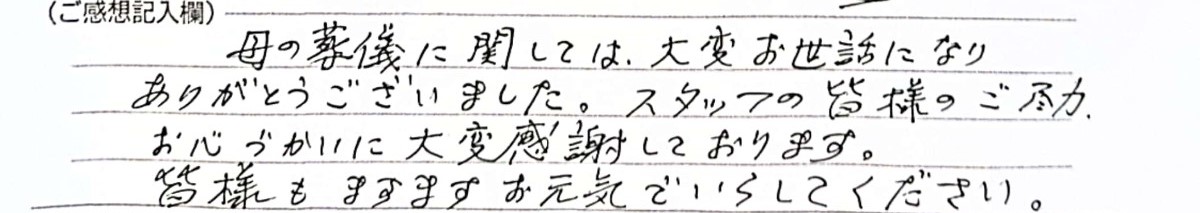 (ご感想記入欄)
母の葬儀に関しては、大変お世話になり
ありがとうございました。スタッフの皆様のご尽力、
お心づかいに大変感謝しております。
皆様もますますお元気でいらしてください。